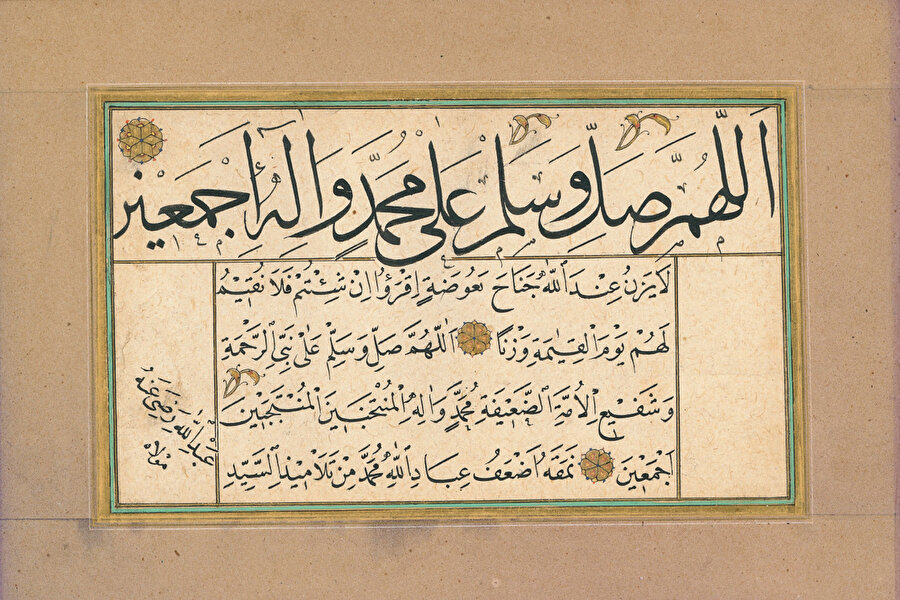 اَللّٰهُمَّ صَلِّ وَسَلِّمْ عَلٰى مُحَمَّدٍ وَاٰلِهِ أَجْمَعِينَ
لَا يَزِنُ عِنْدَ اللّٰهِ جَنَاحَ بَعُوضَةٍ اِقْرَؤُا اِنْ شِئْتُمْ فَلَا نُقِيمُ
لَهُمْ يَوْمَ الْقِيٰمَةِ وَزْنًا اَللّٰهُمَّ صَلِّ وَسَلِّمْ عَلٰى نَبِيِّ الرَّحْمَةِ
وَشَفِيعِ الْاُمَّةِ الضَّعِيفَةِ مُحَمَّدٍ وَاٰلِهِ الْمُنْتَخَبِينَ الْمُنْتَجَبِينَ
اَجْمَعِينَ نَمَقَهُ اَضْعَفُ عِبَادِ اللّٰهِ مُحَمَّدٌ مِنْ تَلَامِيذِ السَّيِّدِ
عَبْدِ اللّٰهِ رَضِيَ عَنْهُ
مَوْلَاهُ